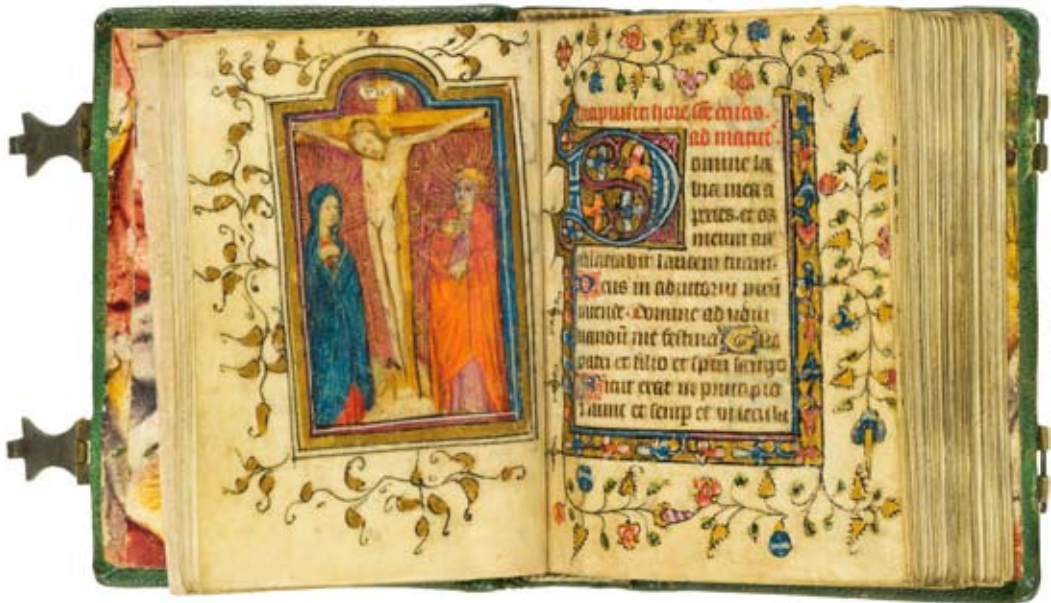 Incipiunt hore sce
ad matut
Domine la
bia mea a
peries. et os
meum
laudem tuam.
Deus in adiutoriū meū
intende. Domine ad adiu
uandū me festina Glia
patri et filio et spui sancto
Sicut erat in principio
et nunc et semp et in secula